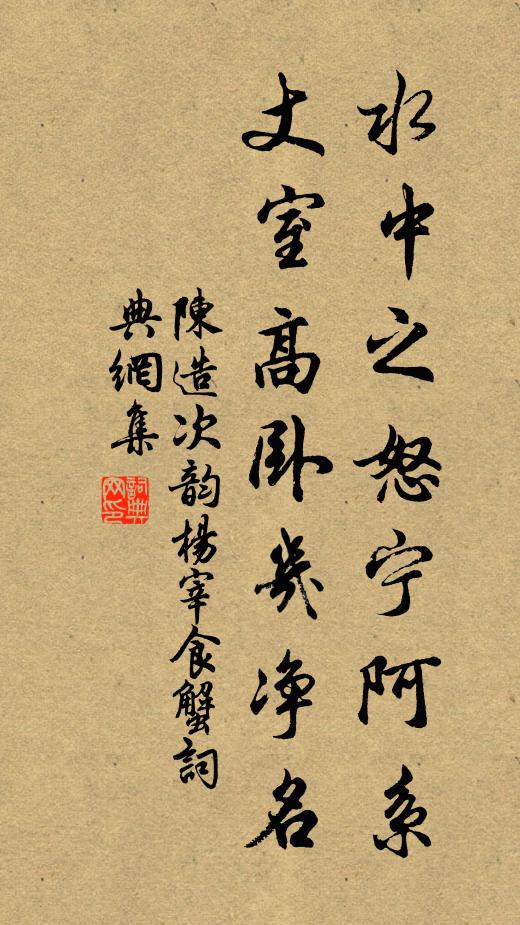 水中之怒宁阿系
丈室高卧几净名
陳造次韵楊宰食蟹詞
典網集
詞典网印